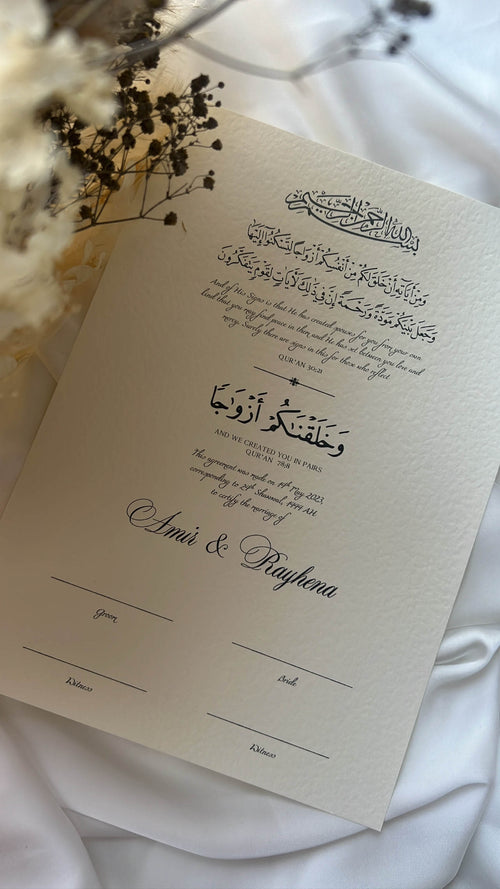 بسم الله الرحمن الرحيم
وَمِنْ آيَاتِهِ أَنْ خَلَقَ لَكُم مِّنْ أَنفُسِكُمْ أَزْوَاجًا لِّتَسْكُنُوا إِلَيْهَا
وَجَعَلَ بَيْنَكُم مَّوَدَّةً وَرَحْمَةً إِنَّ فِي ذَٰلِكَ لَآيَاتٍ لِّقَوْمٍ يَتَفَكَّرُونَ
And of His Signs is that He has created spouses for you from your own
kind that you may find peace in them and He has set between you love and
mercy. Surely there are signs in this for those who reflect
QUR'AN 30:21
وَخَلَقْنَٰكُمْ أَزْوَٰجًا
AND WE CREATED YOU IN PAIRS
QUR'AN 78:8
This agreement was made on 14th May 2023,
corresponding to 24th Shawwal, 1444 AH
to certify the marriage of
Amir & Rayhena
Groom
Bride
Witness
Witness